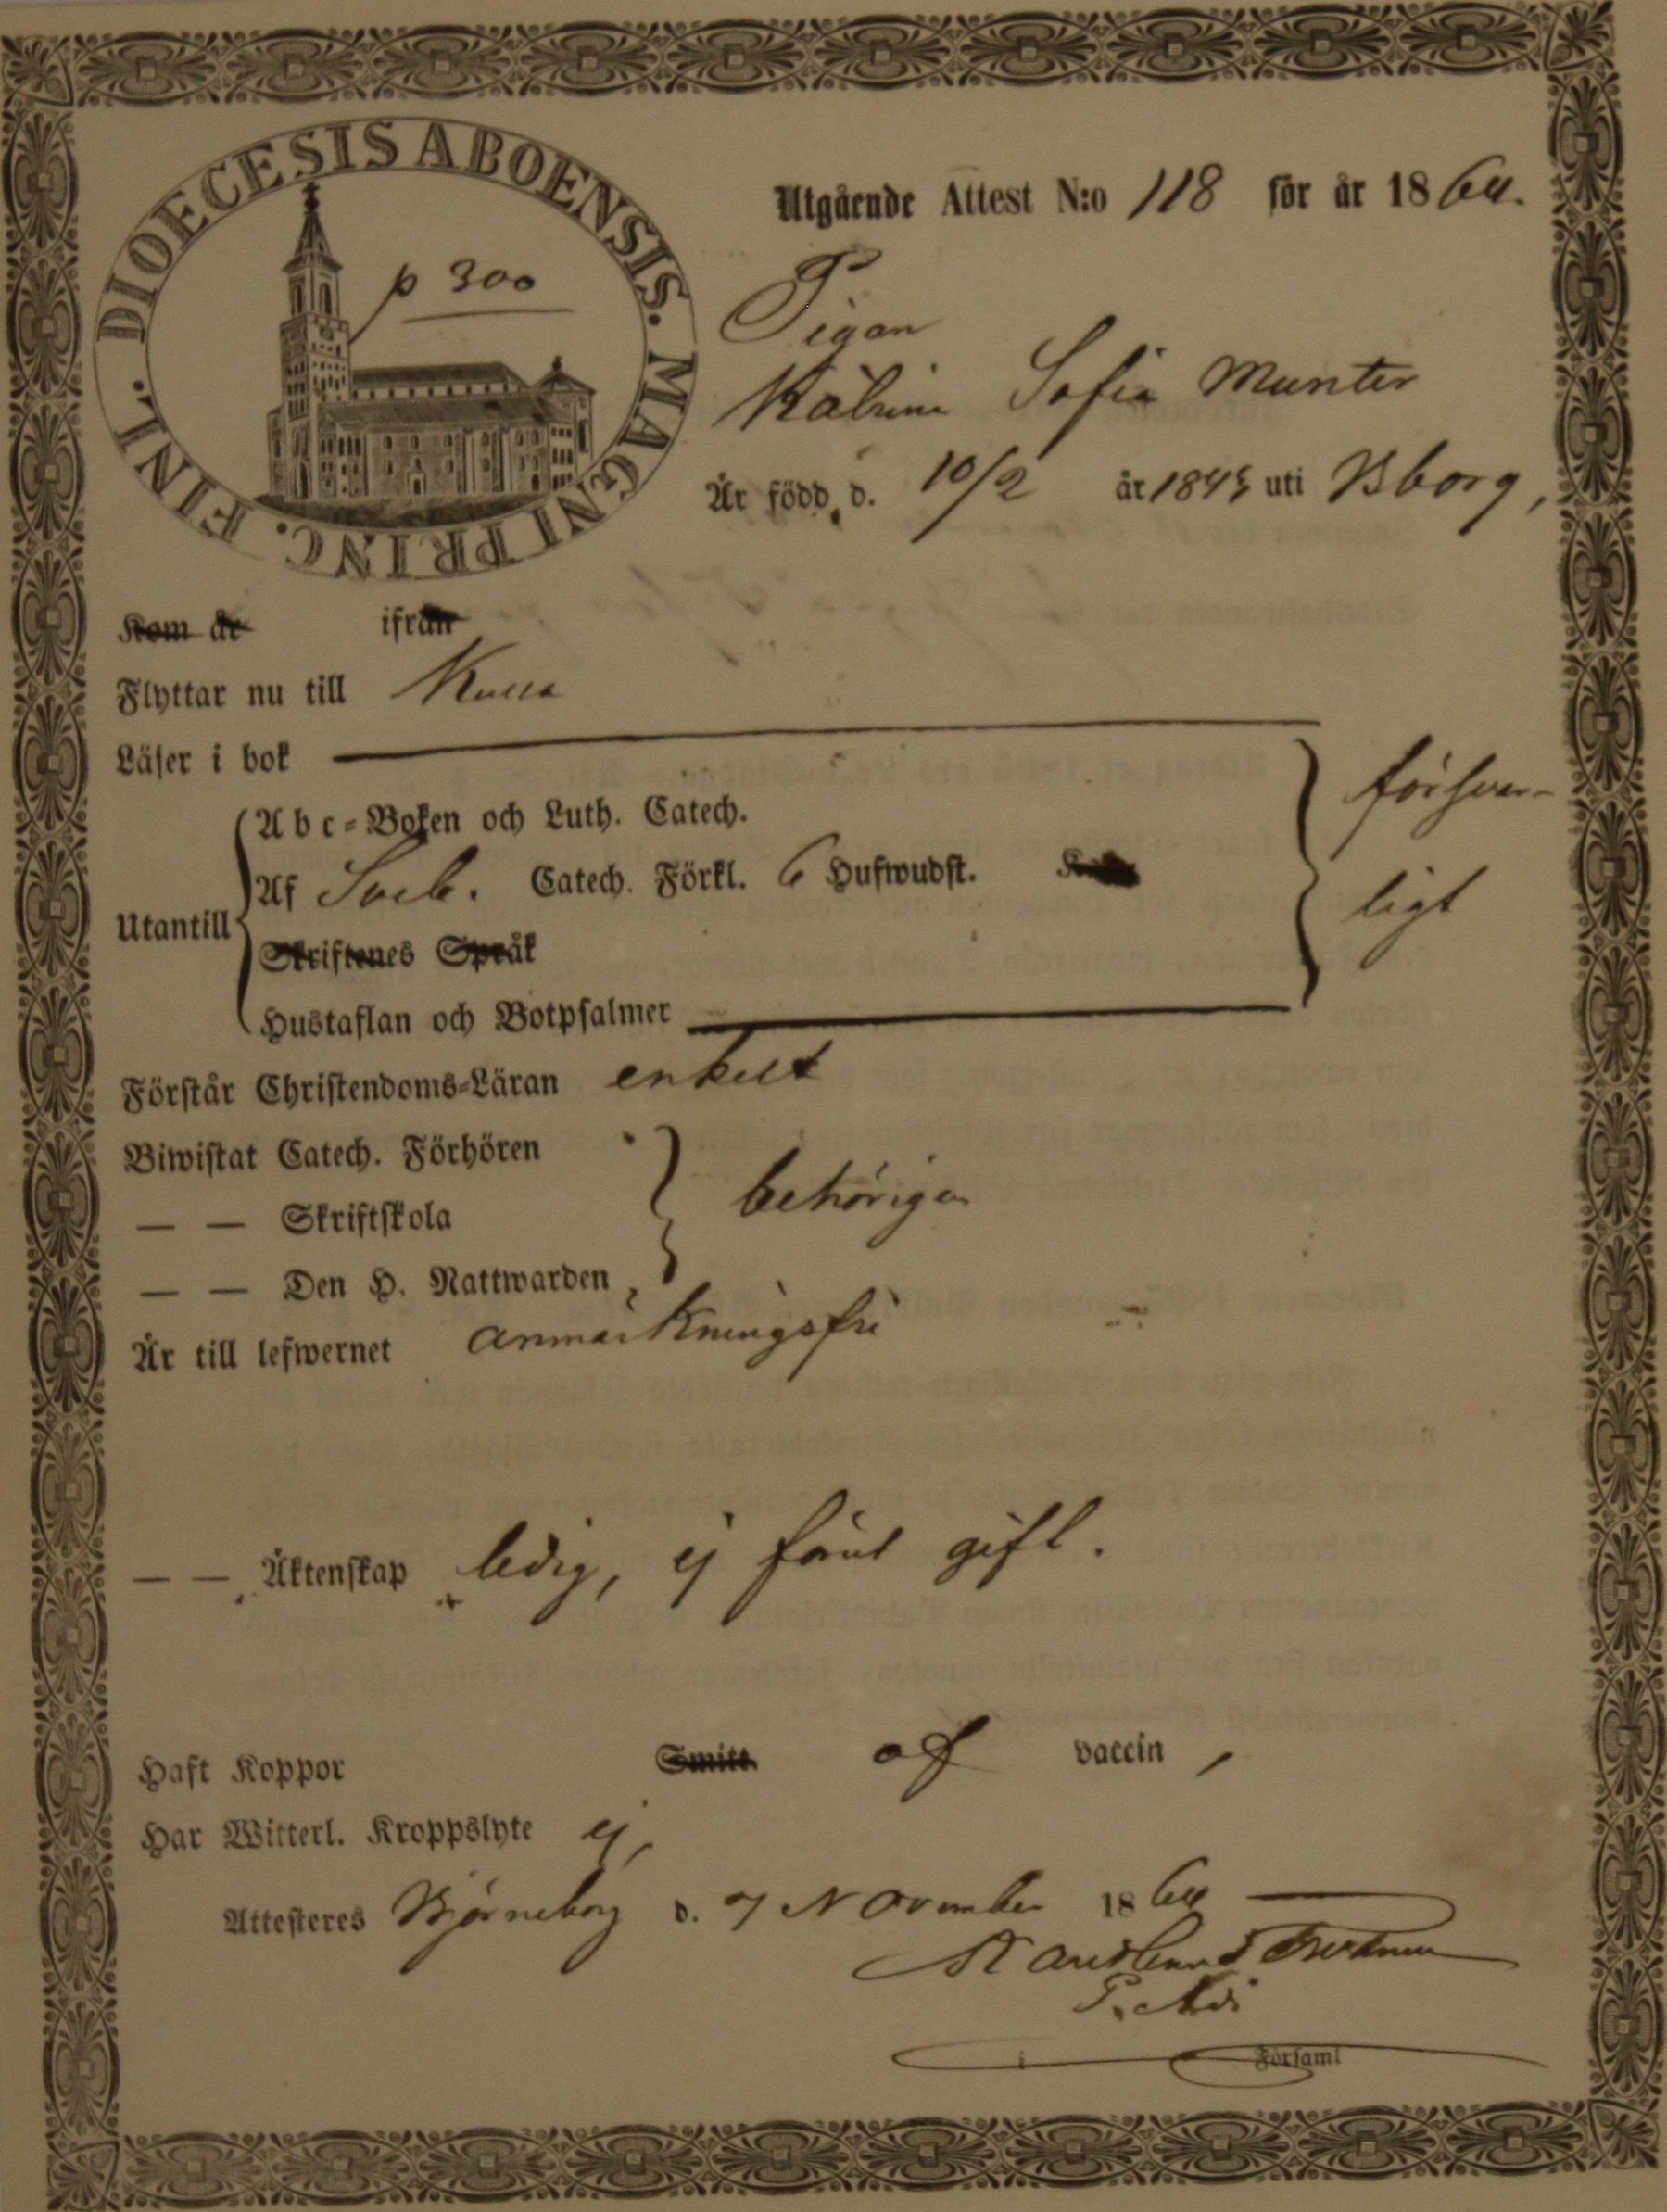 DIOECESIS ABOENSIS. MAGNI PRINC. FINL.
p 300
Utgående Attest N:o 118 för år 1864.
Pigan
Katrina Sofia Munter
År född d. 10/2 år 1845 uti Bborg,
Kom år ifrån
Flyttar nu till Kulla
Läser i bok
försvar-
Abc-Boken och Luth. Catech.
Af Sveb. Catech. Förkl. 6 Hufwudst.
ligt
Utantill
Skriftenes Språk
Hustaflan och Botpsalmer
Förstår Christendoms-Läran enkelt
Biwistat Catech. Förhören
— — Skriftskola
behörigen
— — Den H. Nattwarden,
Är till lefwernet anmärkningsfri
— — Äktenskap ledig, ej förut gift.
Haft Koppor Smitt. af vaccin,
Har Witterl. Kroppslyte ej,
Attesteres Björneborg d. 7 November 1864
i Församl